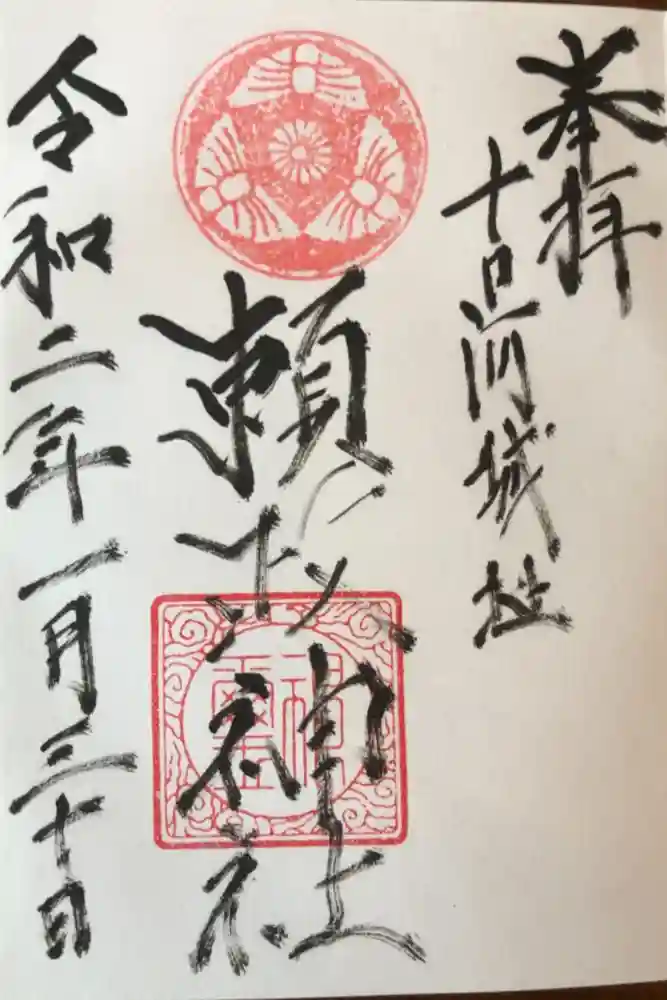 奉拝
古河城址
頼政神社
神璽
令和二年一月三十日